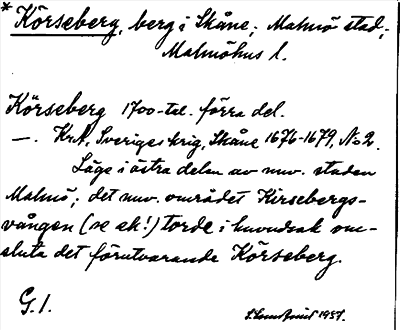 * Körseberg, berg i Skåne; Malmö stad;
Malmöhus l.
Körseberg 1700-tal. förra del.
—. KrA, Sveriges krig, Skåne 1676-1679, No 2.
Läge i östra delen av nuv. staden
Malmö; det nuv. området Kirsebergs-
vången (se ek!) torde i huvudsak om-
sluta det förutvarande Körseberg.
G. l.
1951.